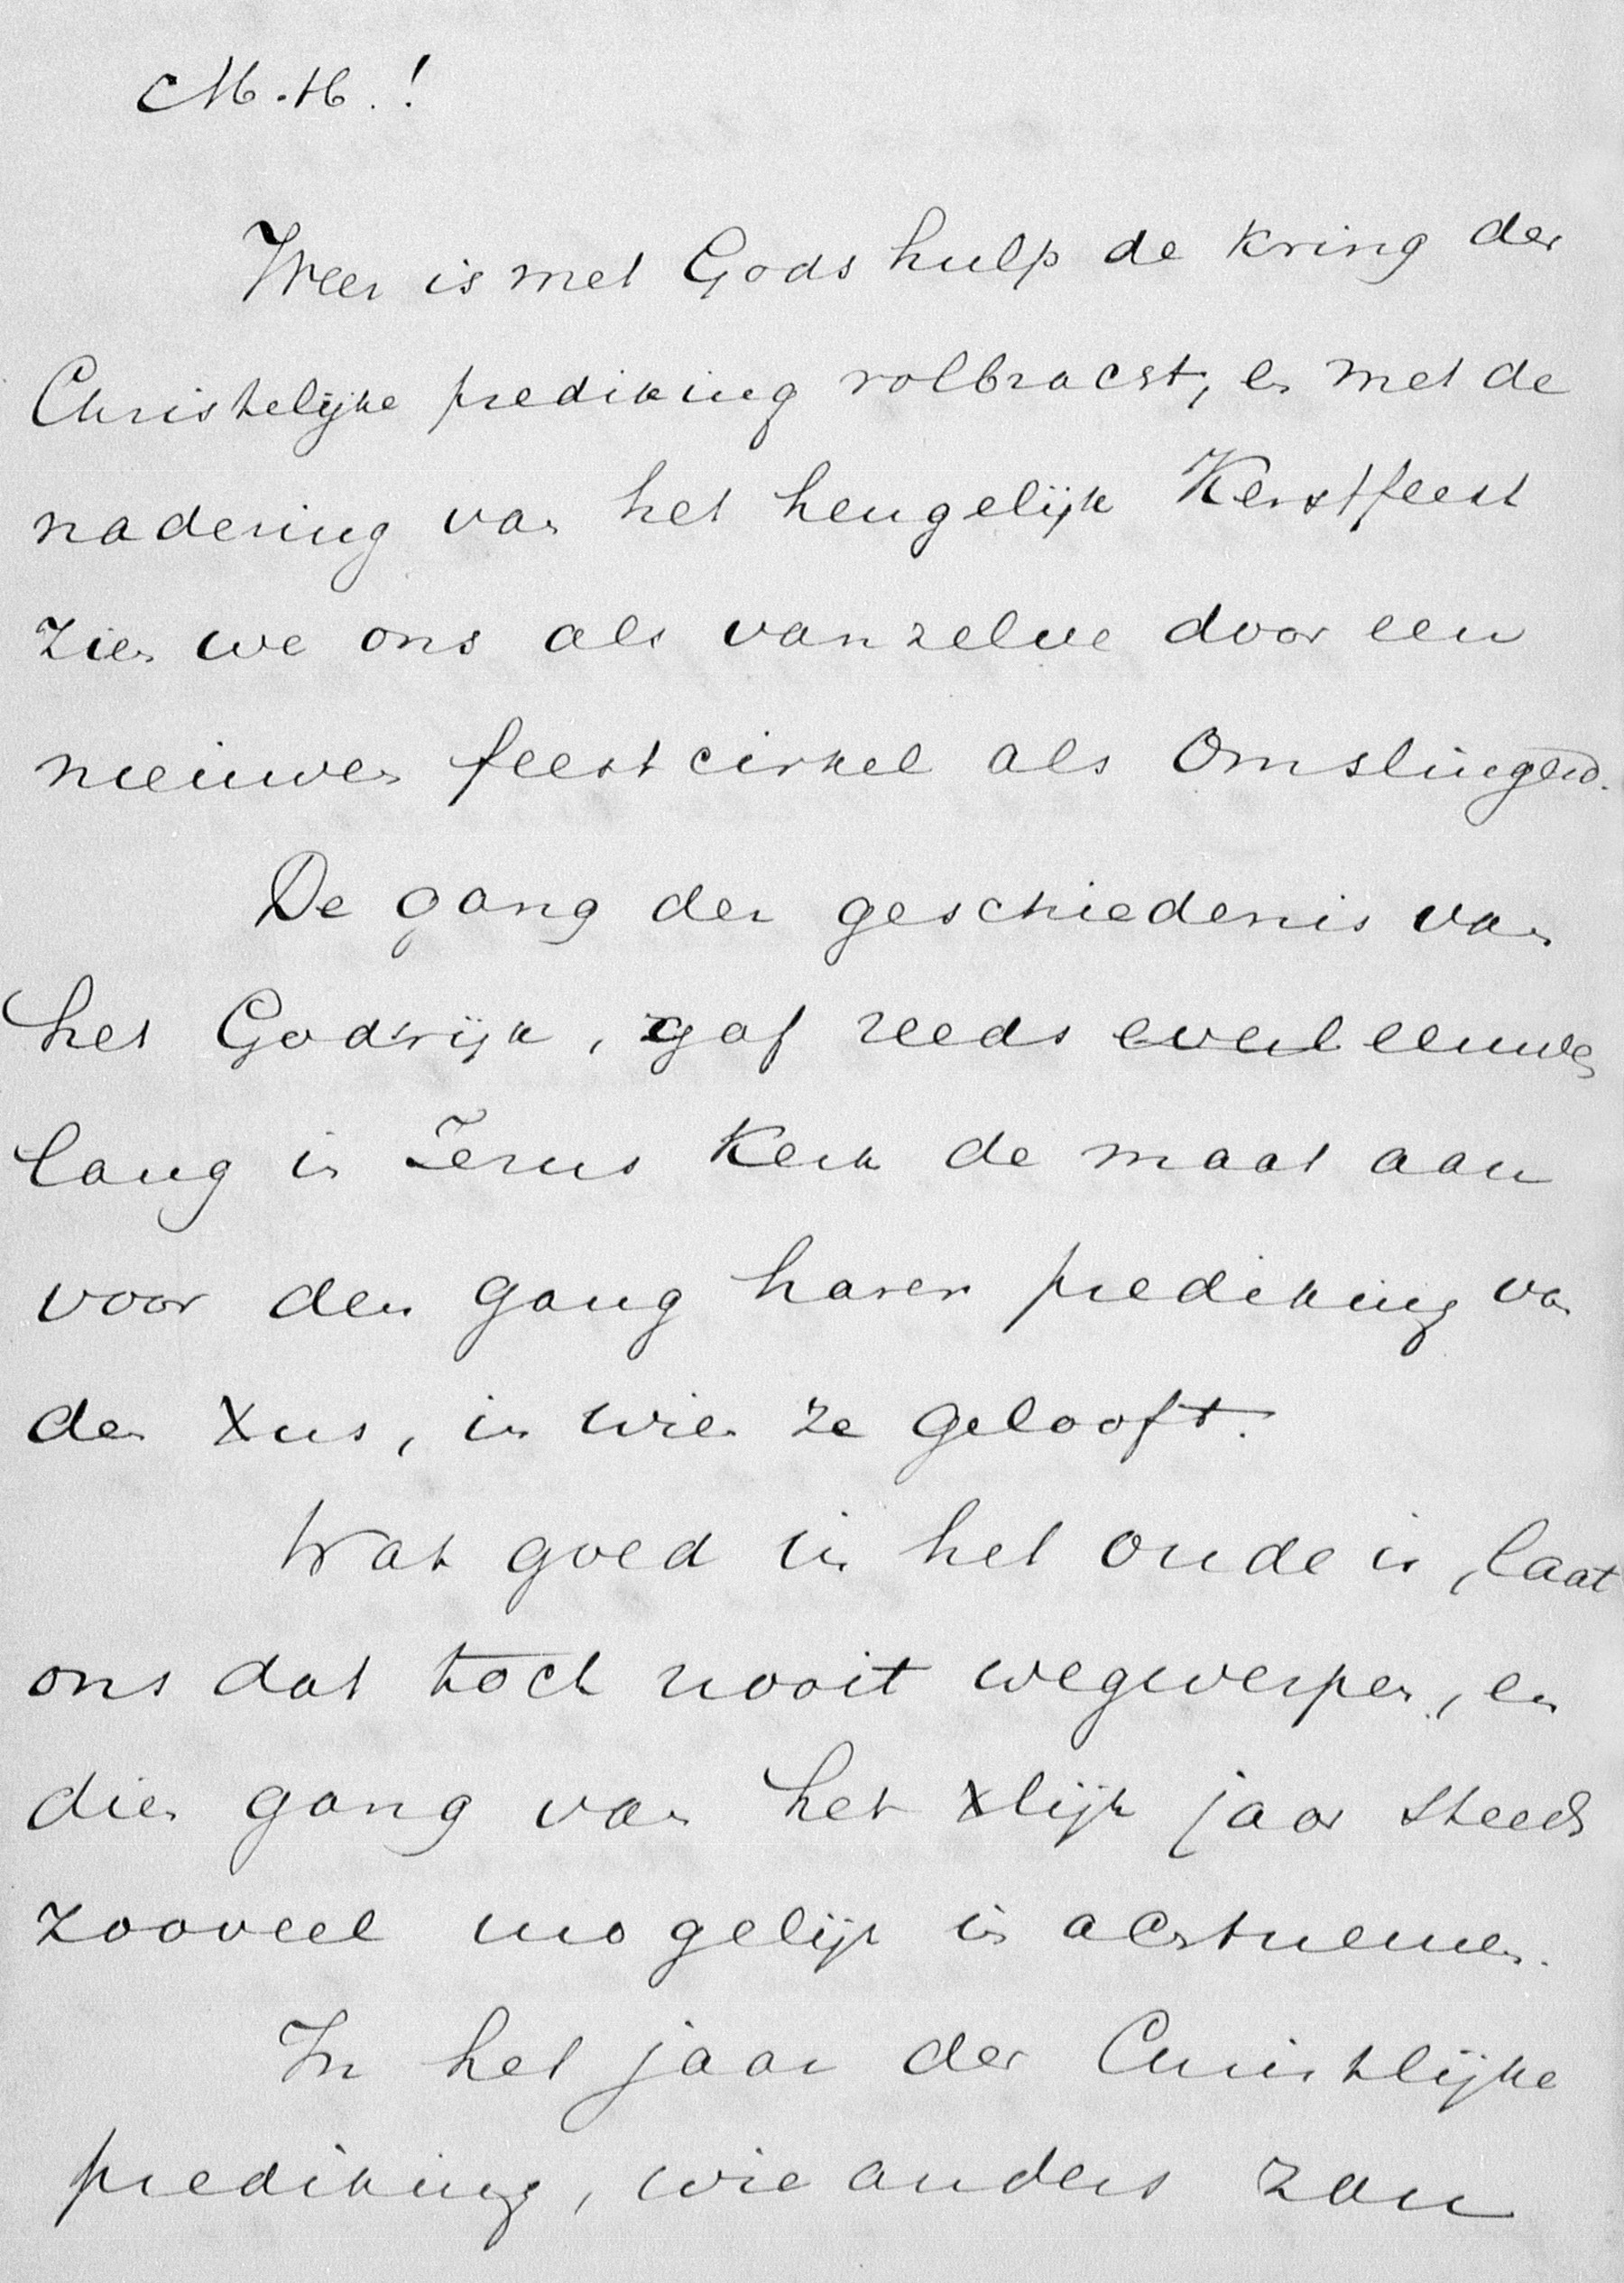 M.H.!
Weer is met Gods hulp de kring der
Christelijke prediking volbracht, en met de
nadering van het heugelijk Kerstfeest
zien we ons als vanzelve door een
nieuwen feestcirkel als omslingerd.
De gang der geschiedenis van
het Godsrijk, gaf reeds eeuwen
lang in Jezus Kerk de maat aan
voor den gang harer prediking van
den Xus, in wien ze gelooft.
Wat goed in het oude is, laat
ons dat toch nooit wegwerpen, en
dien gang van het xlijk jaar steeds
zooveel mogelijk in acht nemen.
In het jaar der Christlijke
prediking, wie anders zou